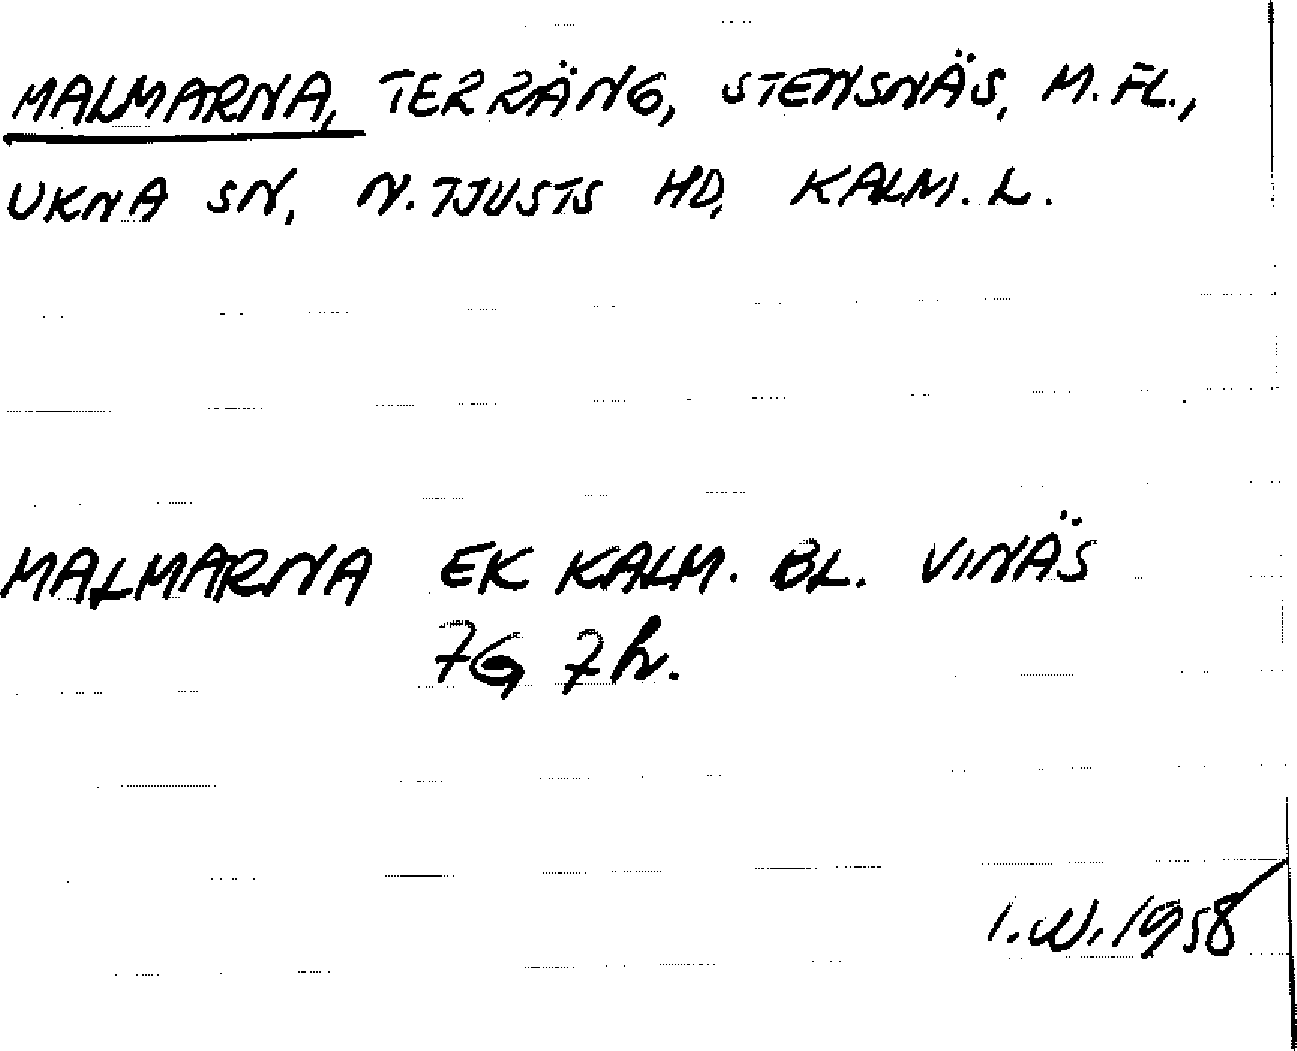 MALMARNA, TERRÄNG, STENSNÄS, M. FL.,
UKNA SN, N. TJUSTS HD, KALM. L.
MALMARNA EK KALM. BL. VINÄS
7G 7h.
1958